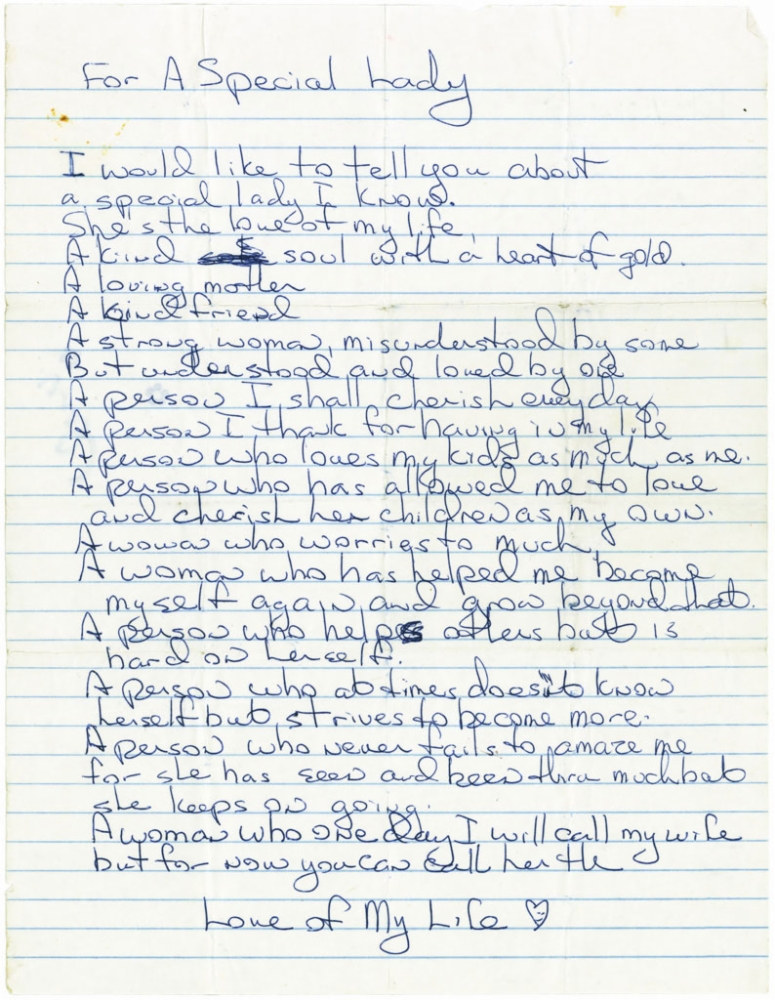 For A Special Lady
I would like to tell you about
a special lady I know.
She's the love of my life
A kind soul with a heart of gold.
A loving mother
A kind friend
A strong woman, misunderstood by some
But understood and loved by one
A person I shall cherish everyday
A person I thank for having in my life
A person who loves my kids as much as me.
A person who has allowed me to love
and cherish her children as my own.
A woman who worries to much,
A woman who has helped me become
myself again and grow beyond that.
A person who helps others but is
hard on herself.
A person who at times doesn't know
herself but strives to become more.
A person who never fails to amaze me
for she has seen and been thru much but
she keeps on going.
A woman who one day I will call my wife
but for now you can call her the
Love of My Life ♡